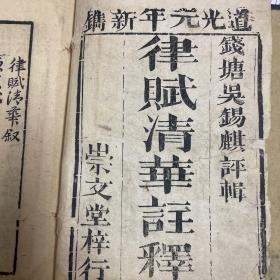 道光元年新鐫
錢塘吳錫麒評輯
律賦清華註釋
崇文堂梓行
律賦清華叙